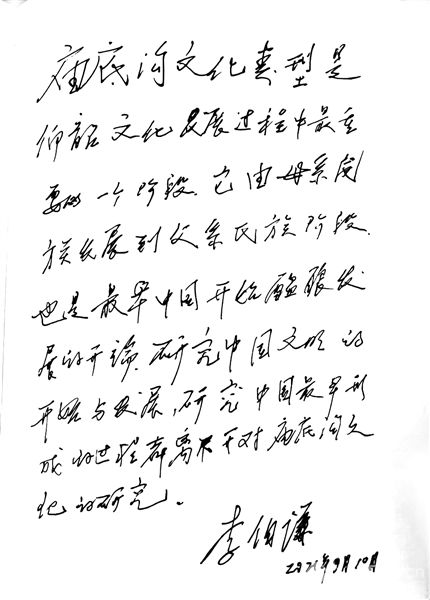 庙底沟文化类型是
仰韶文化发展过程中最重
要的一个阶段.它由母系氏
族发展到父系氏族阶段.
也是最早中国开始酝酿发
展的开端.研究中国文明的
开始与发展,研究中国最早形
成的过程都离不开对庙底沟文
化的研究。
李伯谦
2021年9月10日